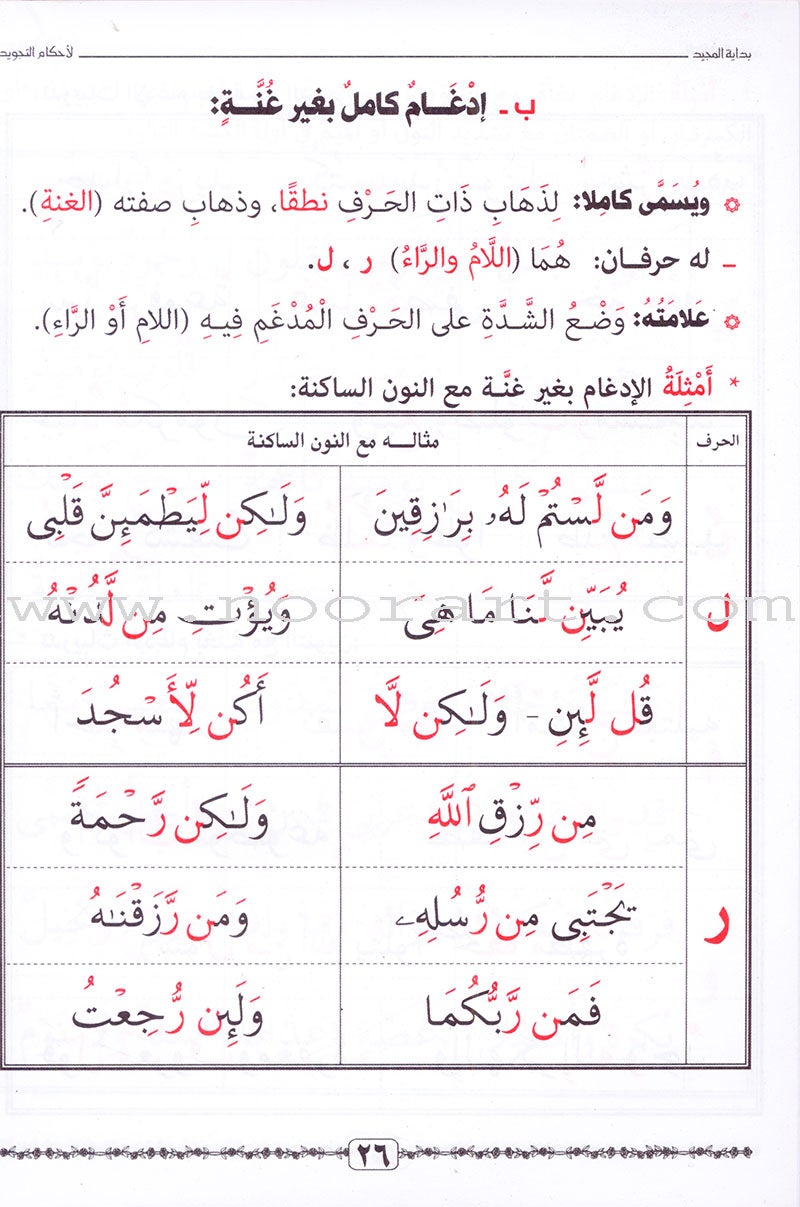 بداية المجيد لأحكام التجويد
ب - إدْغَامٌ كاملٌ بغير غُنَّةٍ:
ويُسَمَّى كاملا: لِذَهَابِ ذَاتِ الحَرْفِ نطقًا، وذهابِ صفته (الغنةِ).
– له حرفان: هُمَا (اللَّامُ والرَّاءُ) ر ، ل.
عَلامَتُهُ: وَضْعُ الشَّدَّةِ على الحَرْفِ الْمُدْغَمِ فِيهِ (اللامِ أَوْ الرَّاءِ).
* أَمْثِلَةُ الإدغام بغير غنَّة مع النون الساكنة:
الحرف مثاله مع النون الساكنة
وَمَن لَّسْتُمْ لَهُۥ بِرَٰزِقِينَ وَلَـٰكِن لِّيَطْمَئِنَّ قَلْبِى
ل يُبَيِّن لَّنَا مَا هِىَ وَيُؤْتِ مِن لَّدُنْهُ
www.noorart.com
قُل لَّئِنِ - وَلَـٰكِن لَّا أَكُن لِّأَسْجُدَ
مِن رِّزْقِ ٱللَّهِ وَلَـٰكِن رَّحْمَةً
ر يَجْتَبِى مِن رُّسُلِهِۦ وَمَن رَّزَقْنَـٰهُ
فَمَن رَّبُّكُمَا وَلَئِن رُّجِعْتُ
٢٦